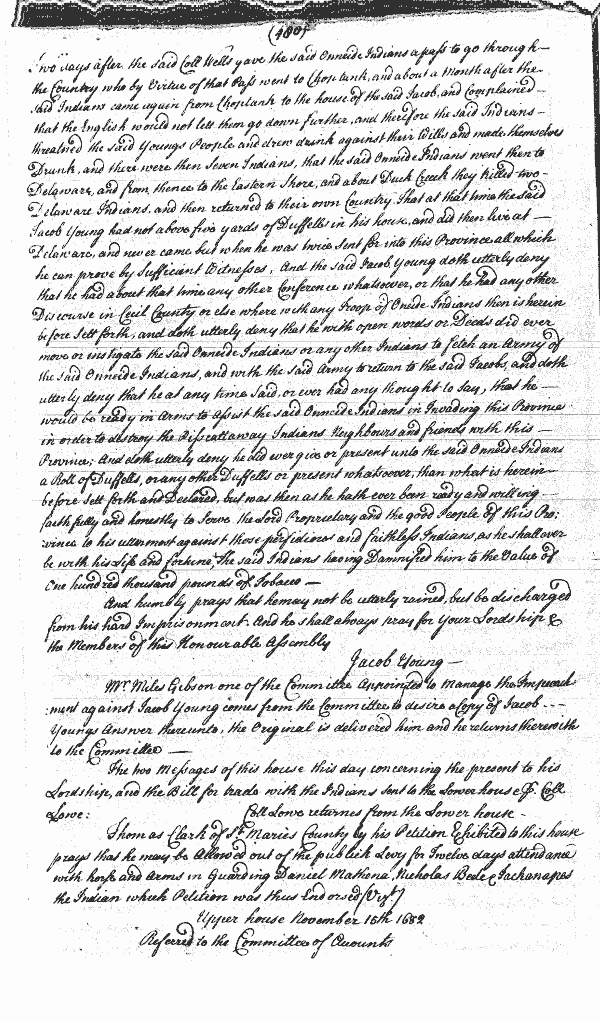 (480)
Two days after, the said Coll Wells gave the said Onneide Indians a pass to go through
the Country who by Virtue of that Pass went to Choptank, and about a Month after the
said Indians came again from Choptank to the house of the said Jacob, and Complained
that the English would not lett them go down further, and therefore the said Indians
threatned the said Youngs People and drew drink against their Wills and made themselves
Drunk, and there were then Seven Indians, that the said Onneide Indians went then to
Delaware, and from thence to the Eastern Shore, and about Duck Creek they killed two
Delaware Indians, and then returned to their own Country. That at that time the said
Jacob Young had not above five yards of Duffells in his house, and did then live at
Delaware, and never came but when he was twice sent for into this Province all which
he can prove by Sufficient Witnesses, And the said Jacob Young doth utterly deny
that he had about that time any other Conference whatsoever, or that he had any other
Discourse in Cecil County or else where with any Troop of Oneide Indians then is herein
before Sett forth, and doth utterly deny that he with open words or Deeds did ever
move or instigate the said Onneide Indians or any other Indians to fetch an Army of
the said Onneide Indians, and with the said Army to return to the said Jacobs, and doth
utterly deny that he at any time said, or ever had any thought to Say, that he
would be ready in Arms to Assist the said Onneide Indians in Invading this Province
in order to destroy the Piscattaway Indians Neighbours and friends with this
Province; And doth utterly deny he did ever give or present unto the said Onneide Indians
a Roll of Duffells, or any other Duffells or present whatsoever, than what is herein
before Sett forth and Declared, but was then as he hath ever been ready and willing
faithfully and honestly to Serve the Said Proprietary and the good People of this Pro:
vince to his uttermost against those perfideous and faithless Indians, as he shall ever
be with his Life and fortune, The said Indians having Damnified him to the Value of
One hundred thousand pounds of Tobacco —
And humbly prays that he may not be utterly ruined, but be discharged
from his hard Imprisonment. And he shall always pray for Your Lordship &
the Members of this Honourable Assembly
Jacob Young —
Mr. Miles Gibson one of the Committee Appointed to Manage the Impeach
:ment against Jacob Young comes from the Committee to desire a Copy of Jacob
Youngs Answer thereunto, the Original is delivered him and he returns therewith
to the Committee —
The two Messages of this house this day concerning the present to his
Lordship, and the Bill for trade with the Indians Sent to the Lower house p. Coll
Lowe: Coll Lowe returnes from the Lower house.
Thomas Clark of St. Maries County by his Petition Exhibited to this house
prays that he may be Allowed out of the publick Levy for Twelve days attendance
with horse and Arms in Guarding Daniel Mathena, Nicholas Bede & Jackanapes
the Indian which Petition was thus Endorsed (Vizt)
Upper house November 15th 1682
Referred to the Committee of Accounts